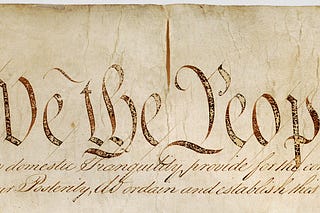 We the Peop
domestic Tranquility, provide for the com
Posterity, do ordain and establish this